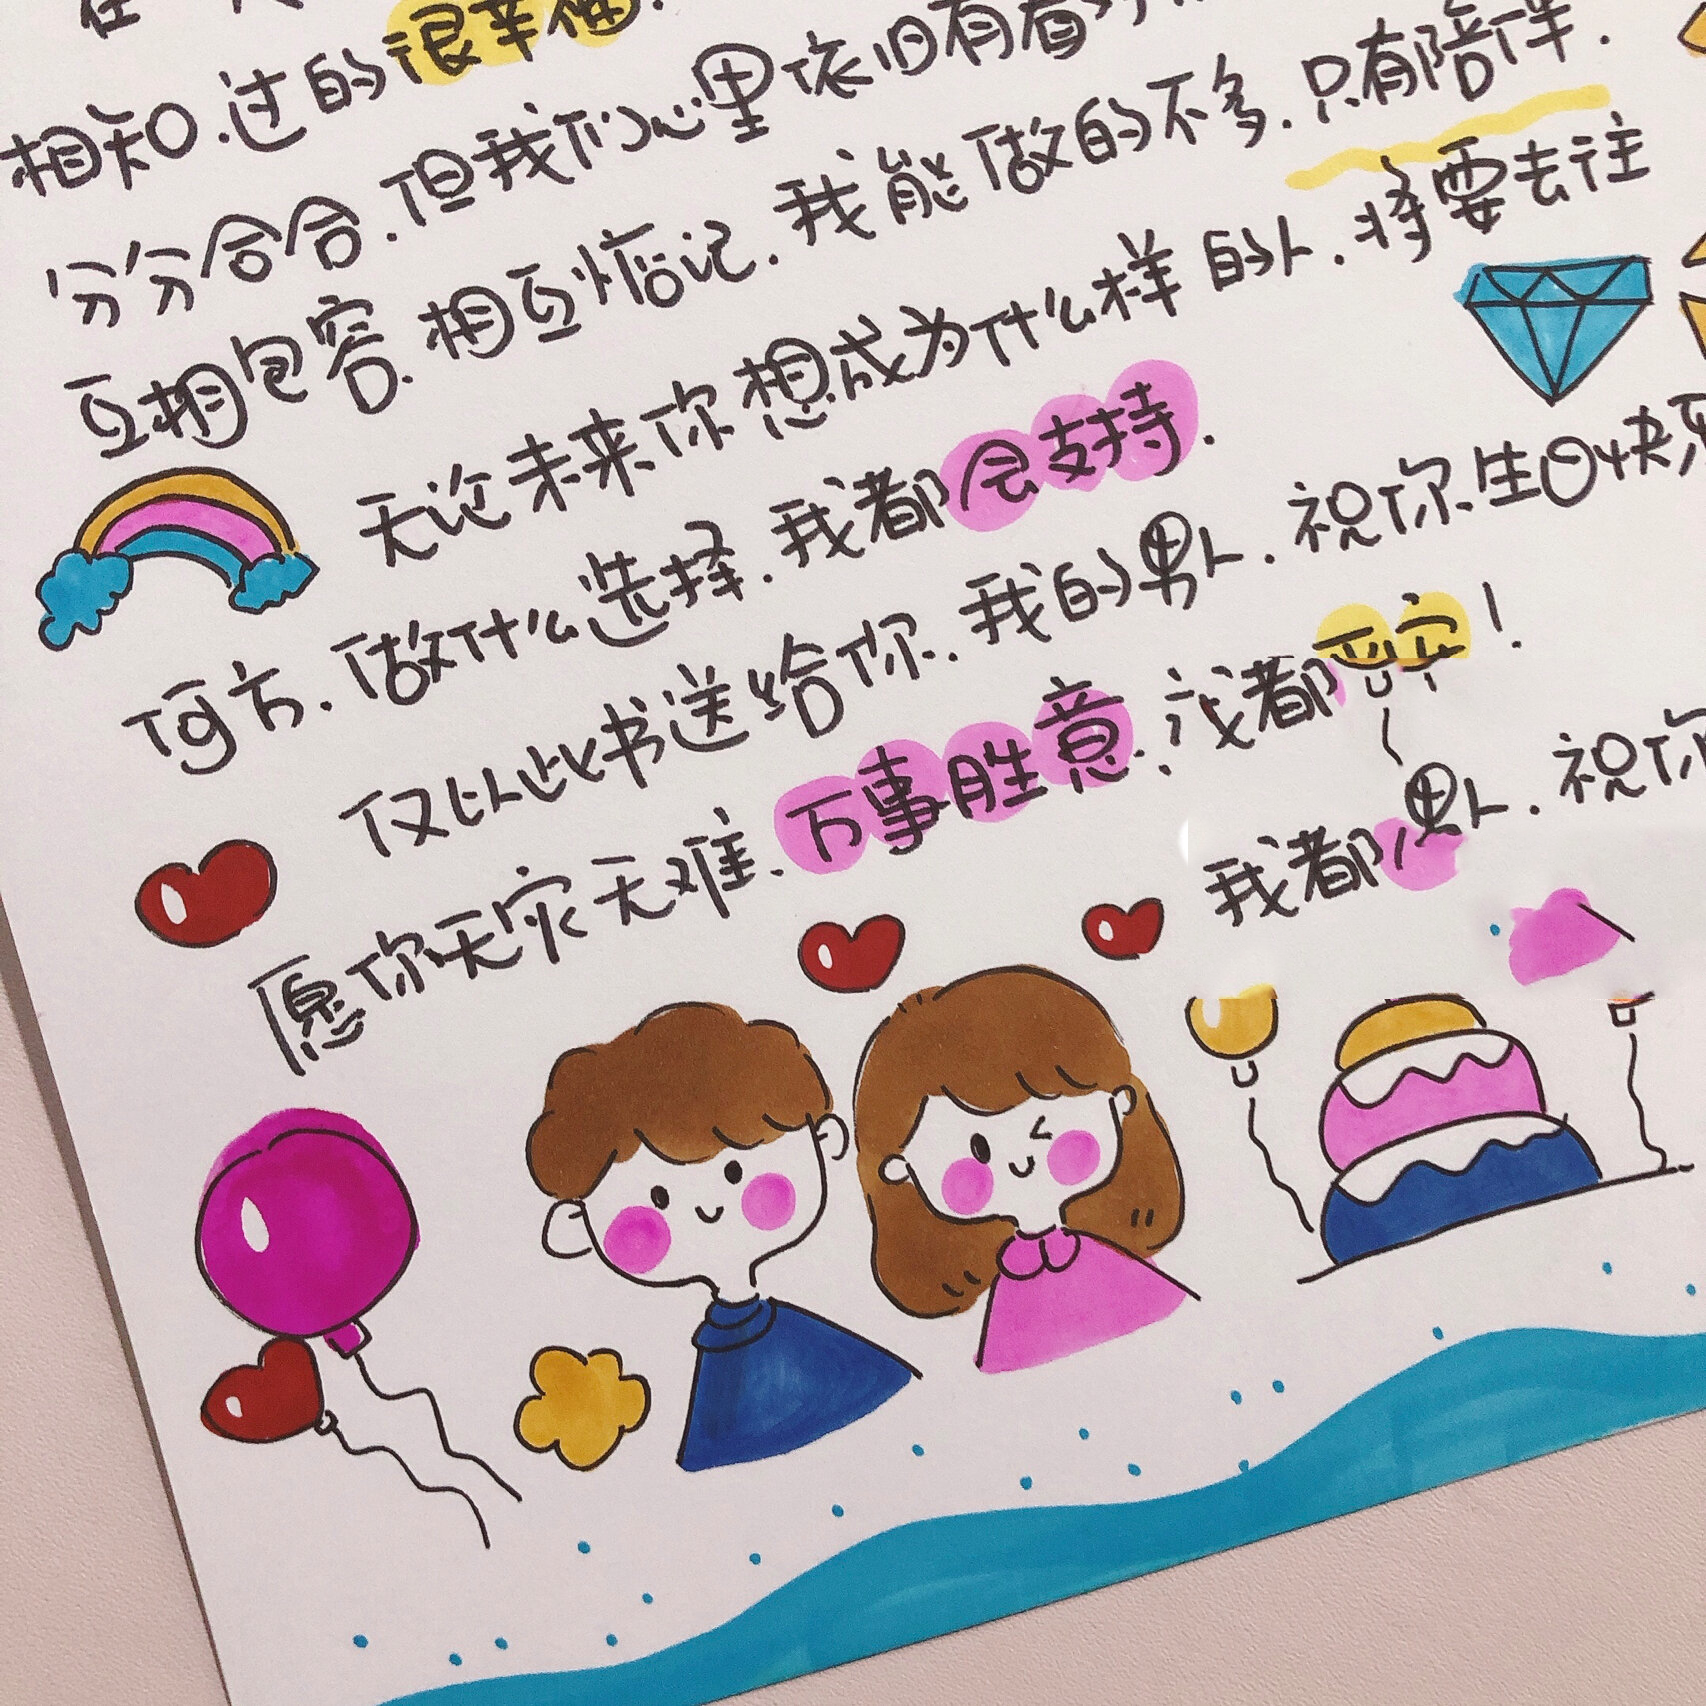 相知.过的很幸福.
分分合合.但我们心里依旧有着
互相包容.相互惦记.我能做的不多.只有陪伴.
无论未来你想成为什么样的人.将要去往
何方.做什么选择.我都会支持.
仅以此书送给你.我的男人.祝你生日快
愿你无灾无难.万事胜意.我都平安!
我都 男人.祝你